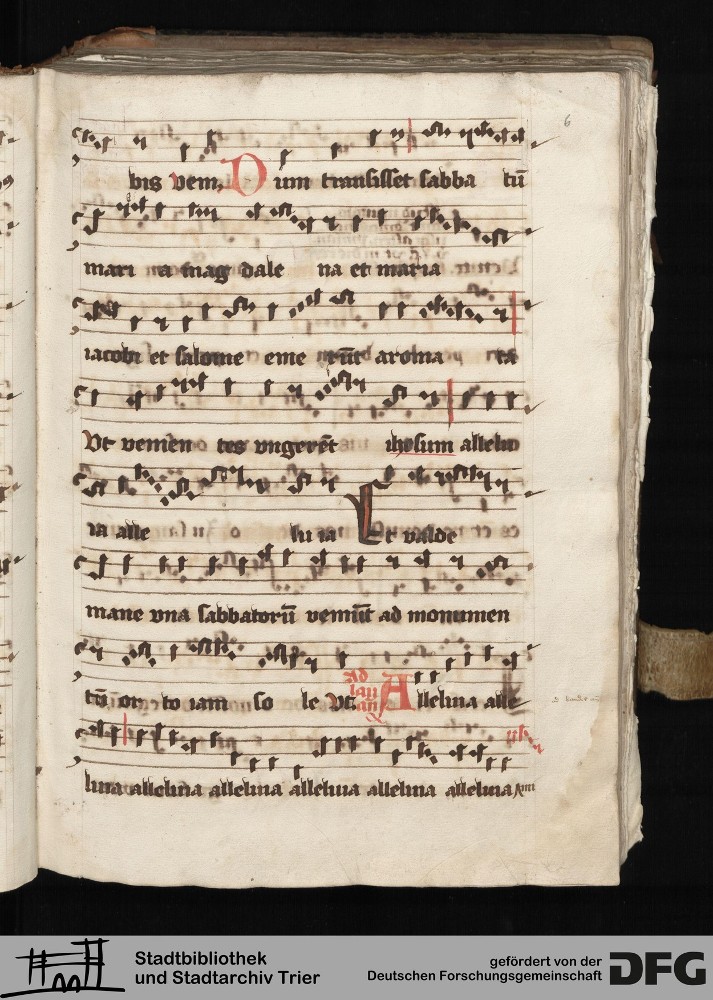 6
bis vem, Dum transisset sabba tū
mari a mag dale na et maria
iacobi et salome eme rūt aroma ta
Vt venien tes vngerēt ihesum allelu
ia alle lu ia Et valde
mane vna sabbatorū veniūt ad monumen
tū or to iam so le Vt. Ad lau an̄ Alleluia alle
luia alleluia alleluia alleluia alleluia alleluia
Stadtbibliothek
und Stadtarchiv Trier
gefördert von der
Deutschen Forschungsgemeinschaft
DFG